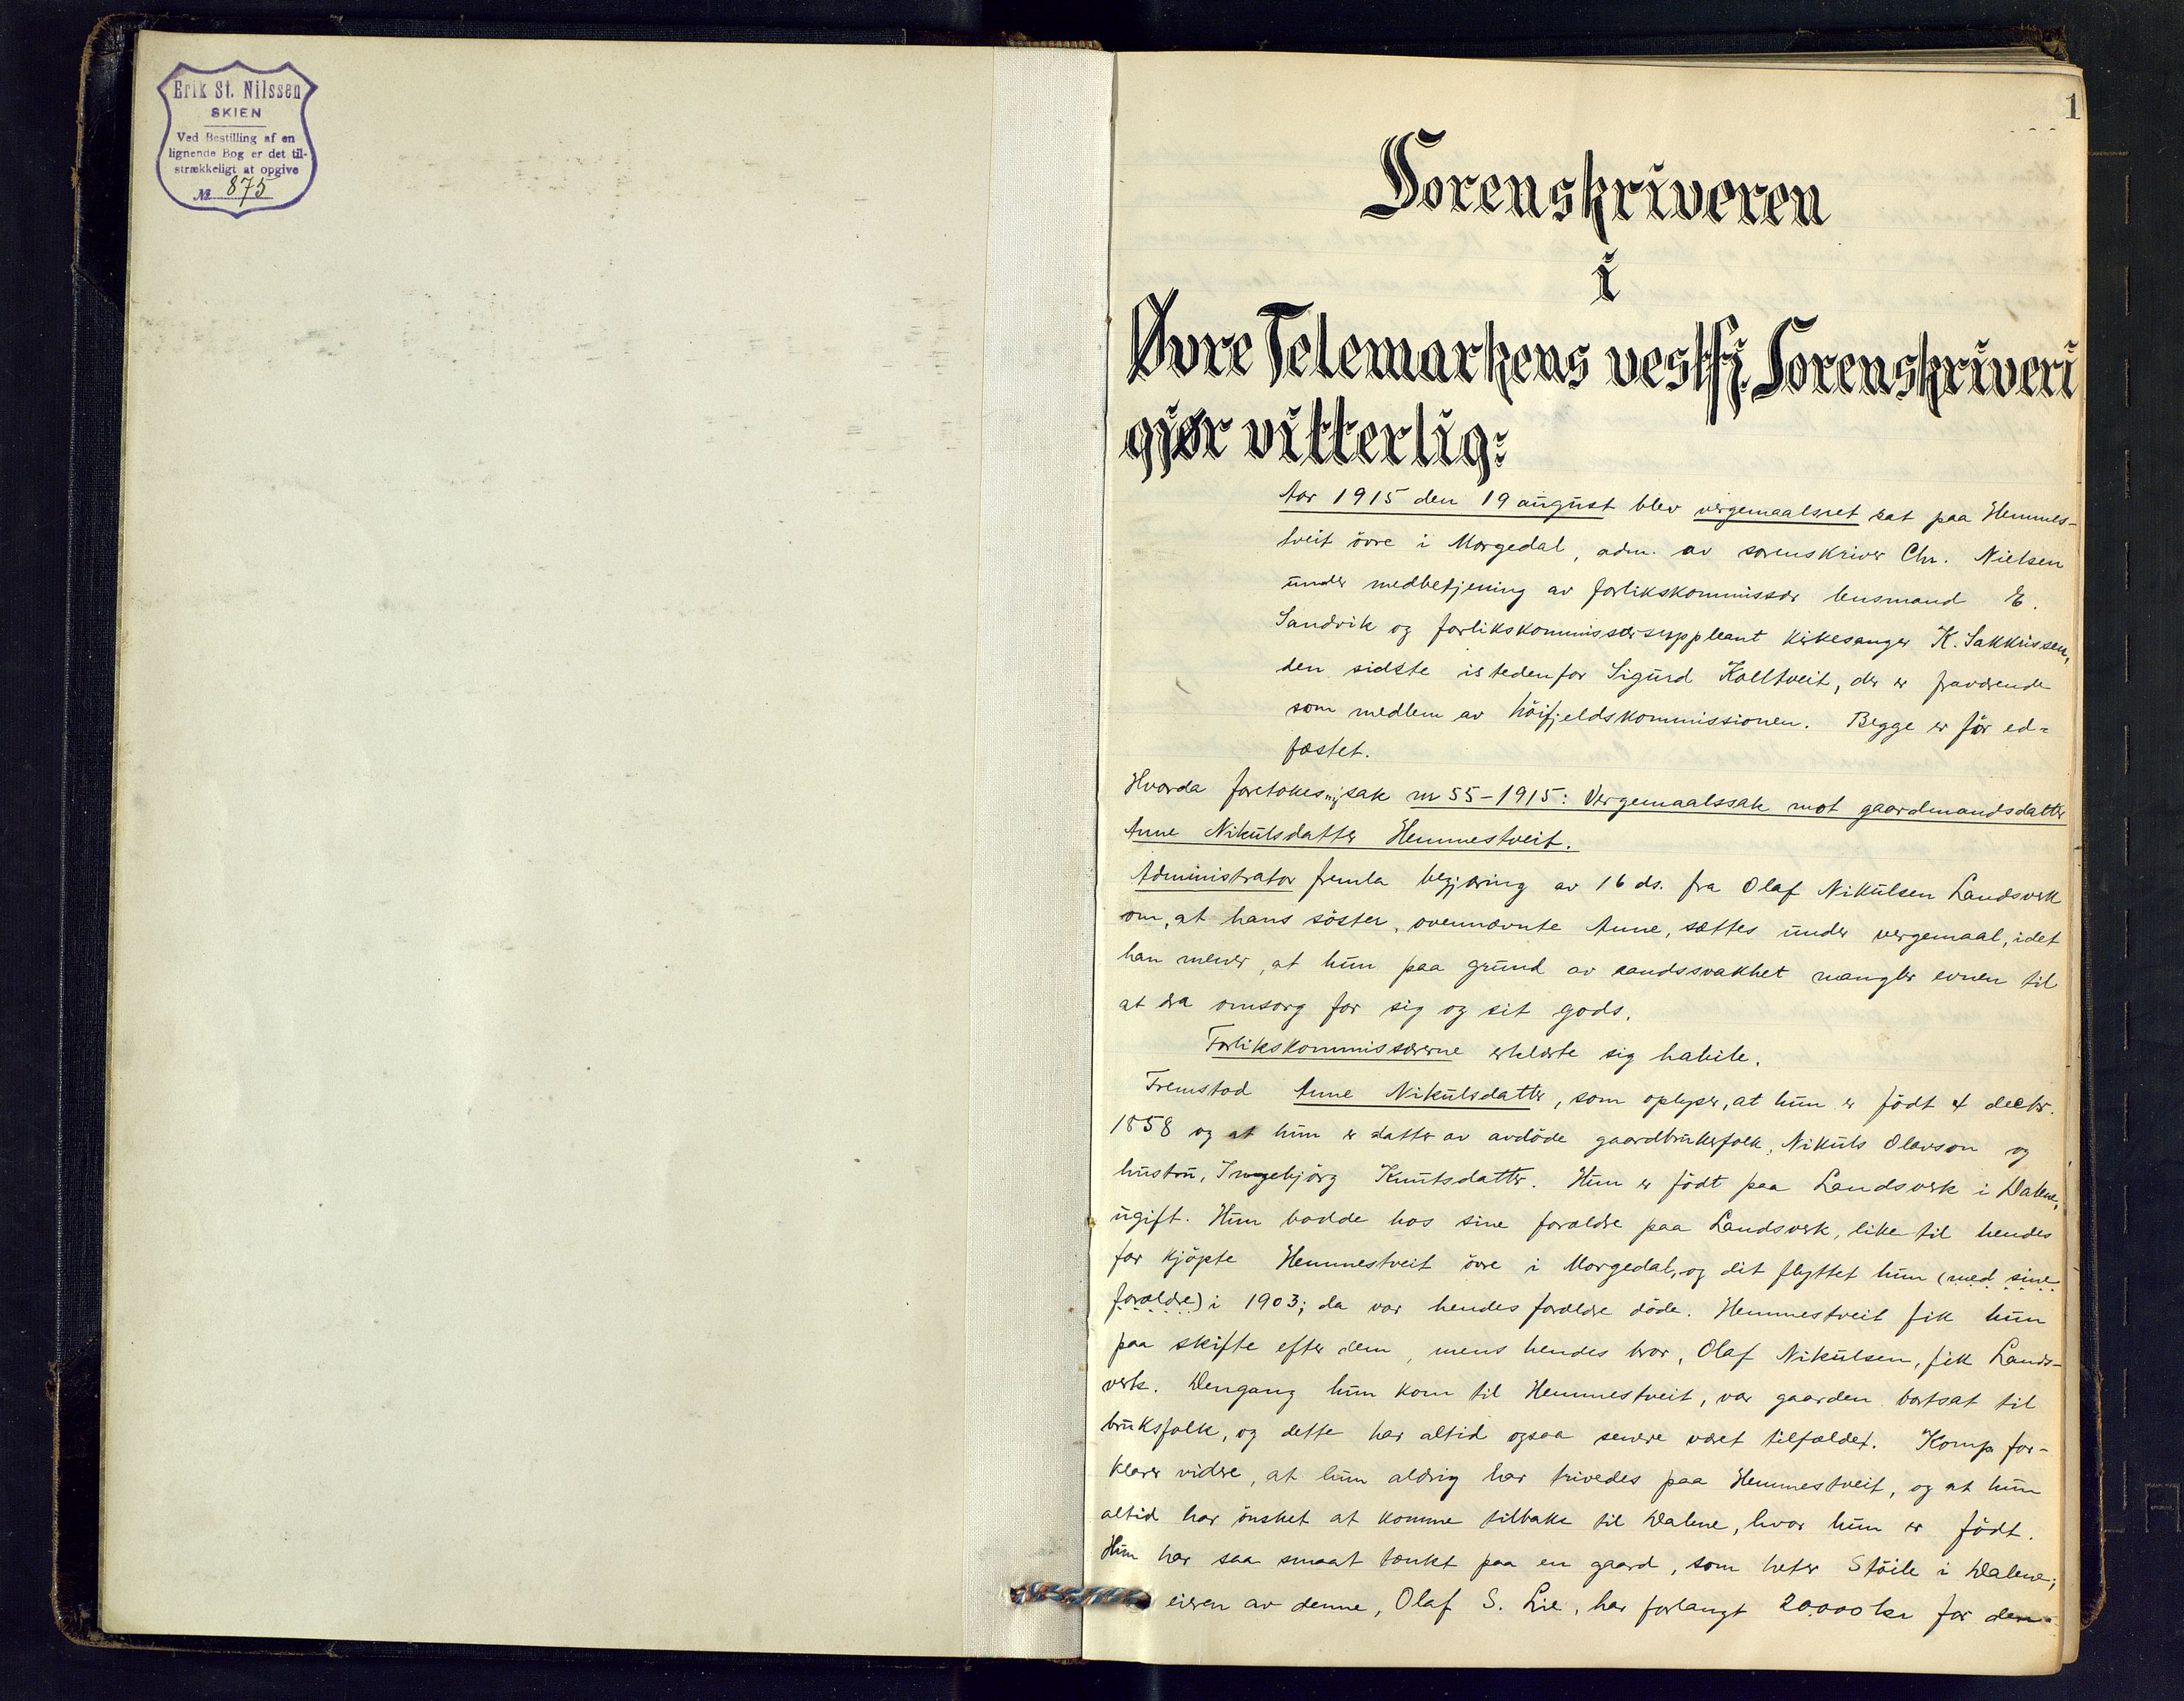 Erik St. Nilssen
SKIEN
Ved Bestilling af en
lignende Bog er det til-
strækkeligt at opgive
№ 875
1
Sorenskriveren
i
Øvre Telemarkens vestfj. Sorenskriveri
gjør vitterlig:
Aar 1915 den 19 august blev vergemaalsret sat paa Hemmes-
tveit övre i Morgedal, adm. av sorenskriver Chr. Nielsen
under medbetjening av forlikskommissær lensmand E.
Sandvik og forlikskommissærsuppleant kirkesanger K. Sakkrissen,
den sidste istedenfor Sigurd Kolltveit, der er fraværende
som medlem av höifjeldskommissionen. Begge er för ed-
fæstet.
Hvorda foretokes sak nr 55-1915: Vergemaalssak mot gaardmandsdatter
Anne Nikulsdatter Hemmestveit.
Administrator fremla begjæring av 16 ds. fra Olaf Nikulsen Landsverk
om, at hans söster, ovennævnte Anne, sættes under vergemaal, idet
han mener, at hun paa grund av aandssvakhet mangler evnen til
at dra omsorg for sig og sit gods.
Forlikskommissærerne erklærte sig habile.
Fremstod Anne Nikulsdatter, som oplyser, at hun er födt 4 decbr.
1858 og at hun er datter av avdöde gaardbrukerfolk, Nikuls Olavson og
hustru, Ingebjörg Knutsdatter. Hun er födt paa Landsverk i Dalene,
ugift. Hun bodde hos sine forældre paa Landsverk, like til hendes
far kjöpte Hemmestveit övre i Morgedal, og dit flyttet hun (med sine
forældre) i 1903; da var hendes forældre döde. Hemmestveit fik hun
paa skifte efter dem, mens hendes bror, Olaf Nikulsen, fik Lands-
verk. Dengang hun kom til Hemmestveit, var gaarden bortsat til
bruksfolk, og dette har altid ogsaa senere været tilfældet. Komp. for-
klarer videre, at hun aldrig har trivedes paa Hemmestveit, og at hun
altid har önsket at komme tilbake til Dalene, hvor hun er födt.
Hun har saa smaat tænkt paa en gaard, som heter Stöile i Dalene;
eieren av denne, Olaf S. Lie, har forlangt 20.000 kr for den